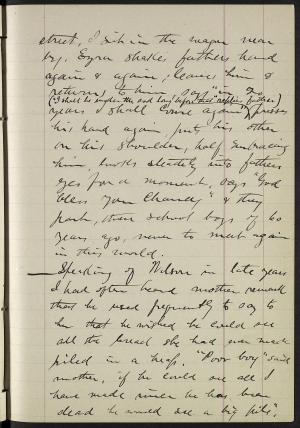 street, I sit in the wagon near
by. Ezra shakes fathers hand
again & again; leaves him &
returns to him says "in 20
(I shall be under the sod long before that replies father)
years I shall come again; presses
his hand again, puts his other
on his shoulder, half embracing
him, looks steadily into fathers
eyes for a moment, says "God
bless you Chauncey" & they
part, these school boys of 60
years ago, never to meet again
in this world.
Speaking of Wilson in late years
I had often heard mother remark
that he used frequently to say to
her that he wished he could see
all the bread she had ever made
piled in a heap. "Poor boy" said
mother, if he could see all I
have made since he has been
dead he would see a big pile",